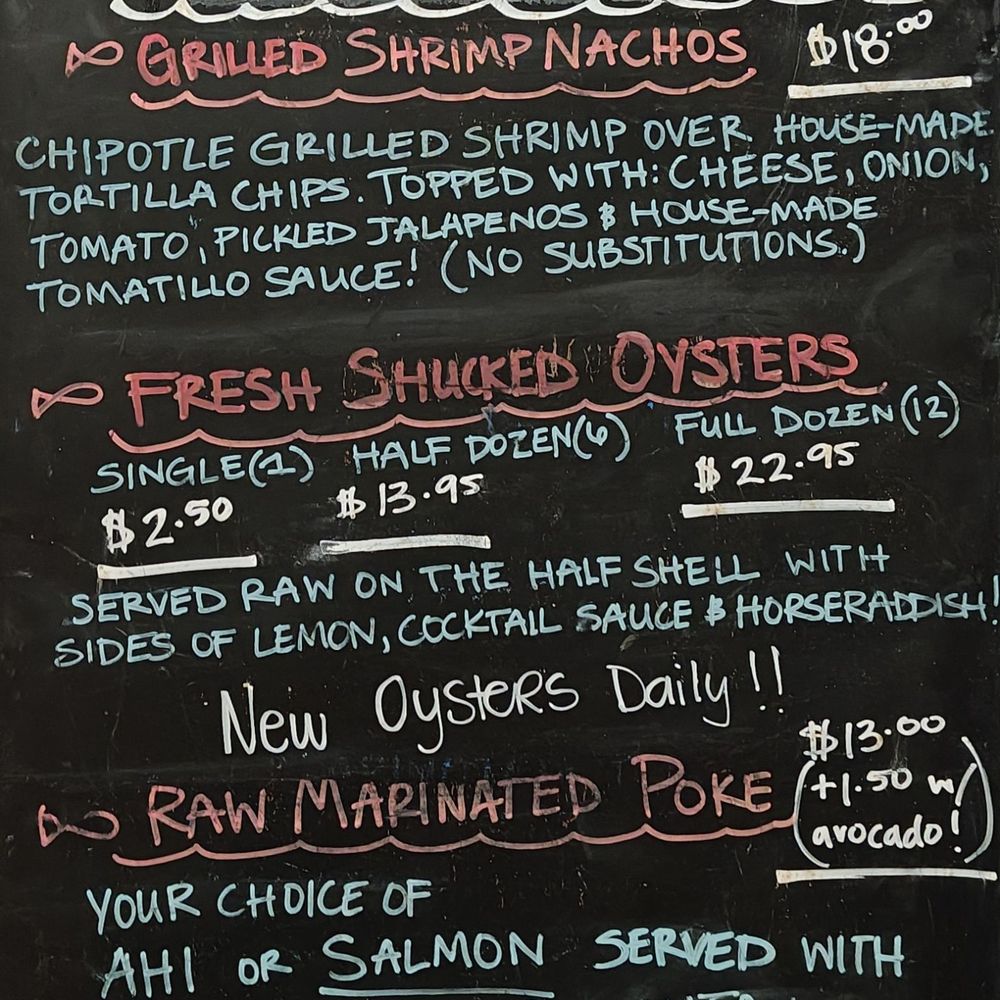 GRILLED SHRIMP NACHOS $18.00
CHIPOTLE GRILLED SHRIMP OVER HOUSE-MADE
TORTILLA CHIPS. TOPPED WITH: CHEESE, ONION,
TOMATO, PICKLED JALAPENOS & HOUSE-MADE
TOMATILLO SAUCE! (NO SUBSTITUTIONS.)
FRESH SHUCKED OYSTERS
SINGLE(1) HALF DOZEN(6) FULL DOZEN(12)
$2.50 $13.95 $22.95
SERVED RAW ON THE HALF SHELL WITH
SIDES OF LEMON, COCKTAIL SAUCE & HORSERADDISH!
New Oysters Daily!!
RAW MARINATED POKE $13.00
(+1.50 w/
avocado!)
YOUR CHOICE OF
AHI OR SALMON SERVED WITH